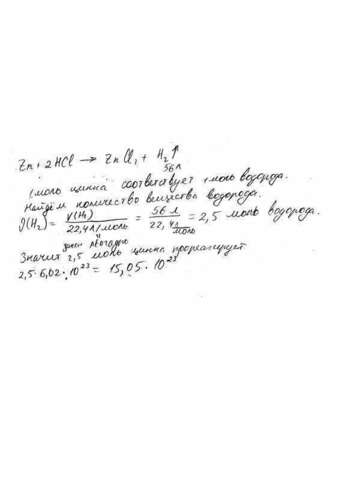 Zn + 2HCl → ZnCl₂ + H₂↑
56л
1 моль цинка соответствует 1 моль водорода.
Найдём количество вещества водорода.
ν(H₂) = V(H₂) / 22,4 л/моль = 56 л / 22,4 л/моль = 2,5 моль водорода.
Значит 2,5 моль цинка прореагирует
2,5 · 6,02 · 10²³ = 15,05 · 10²³